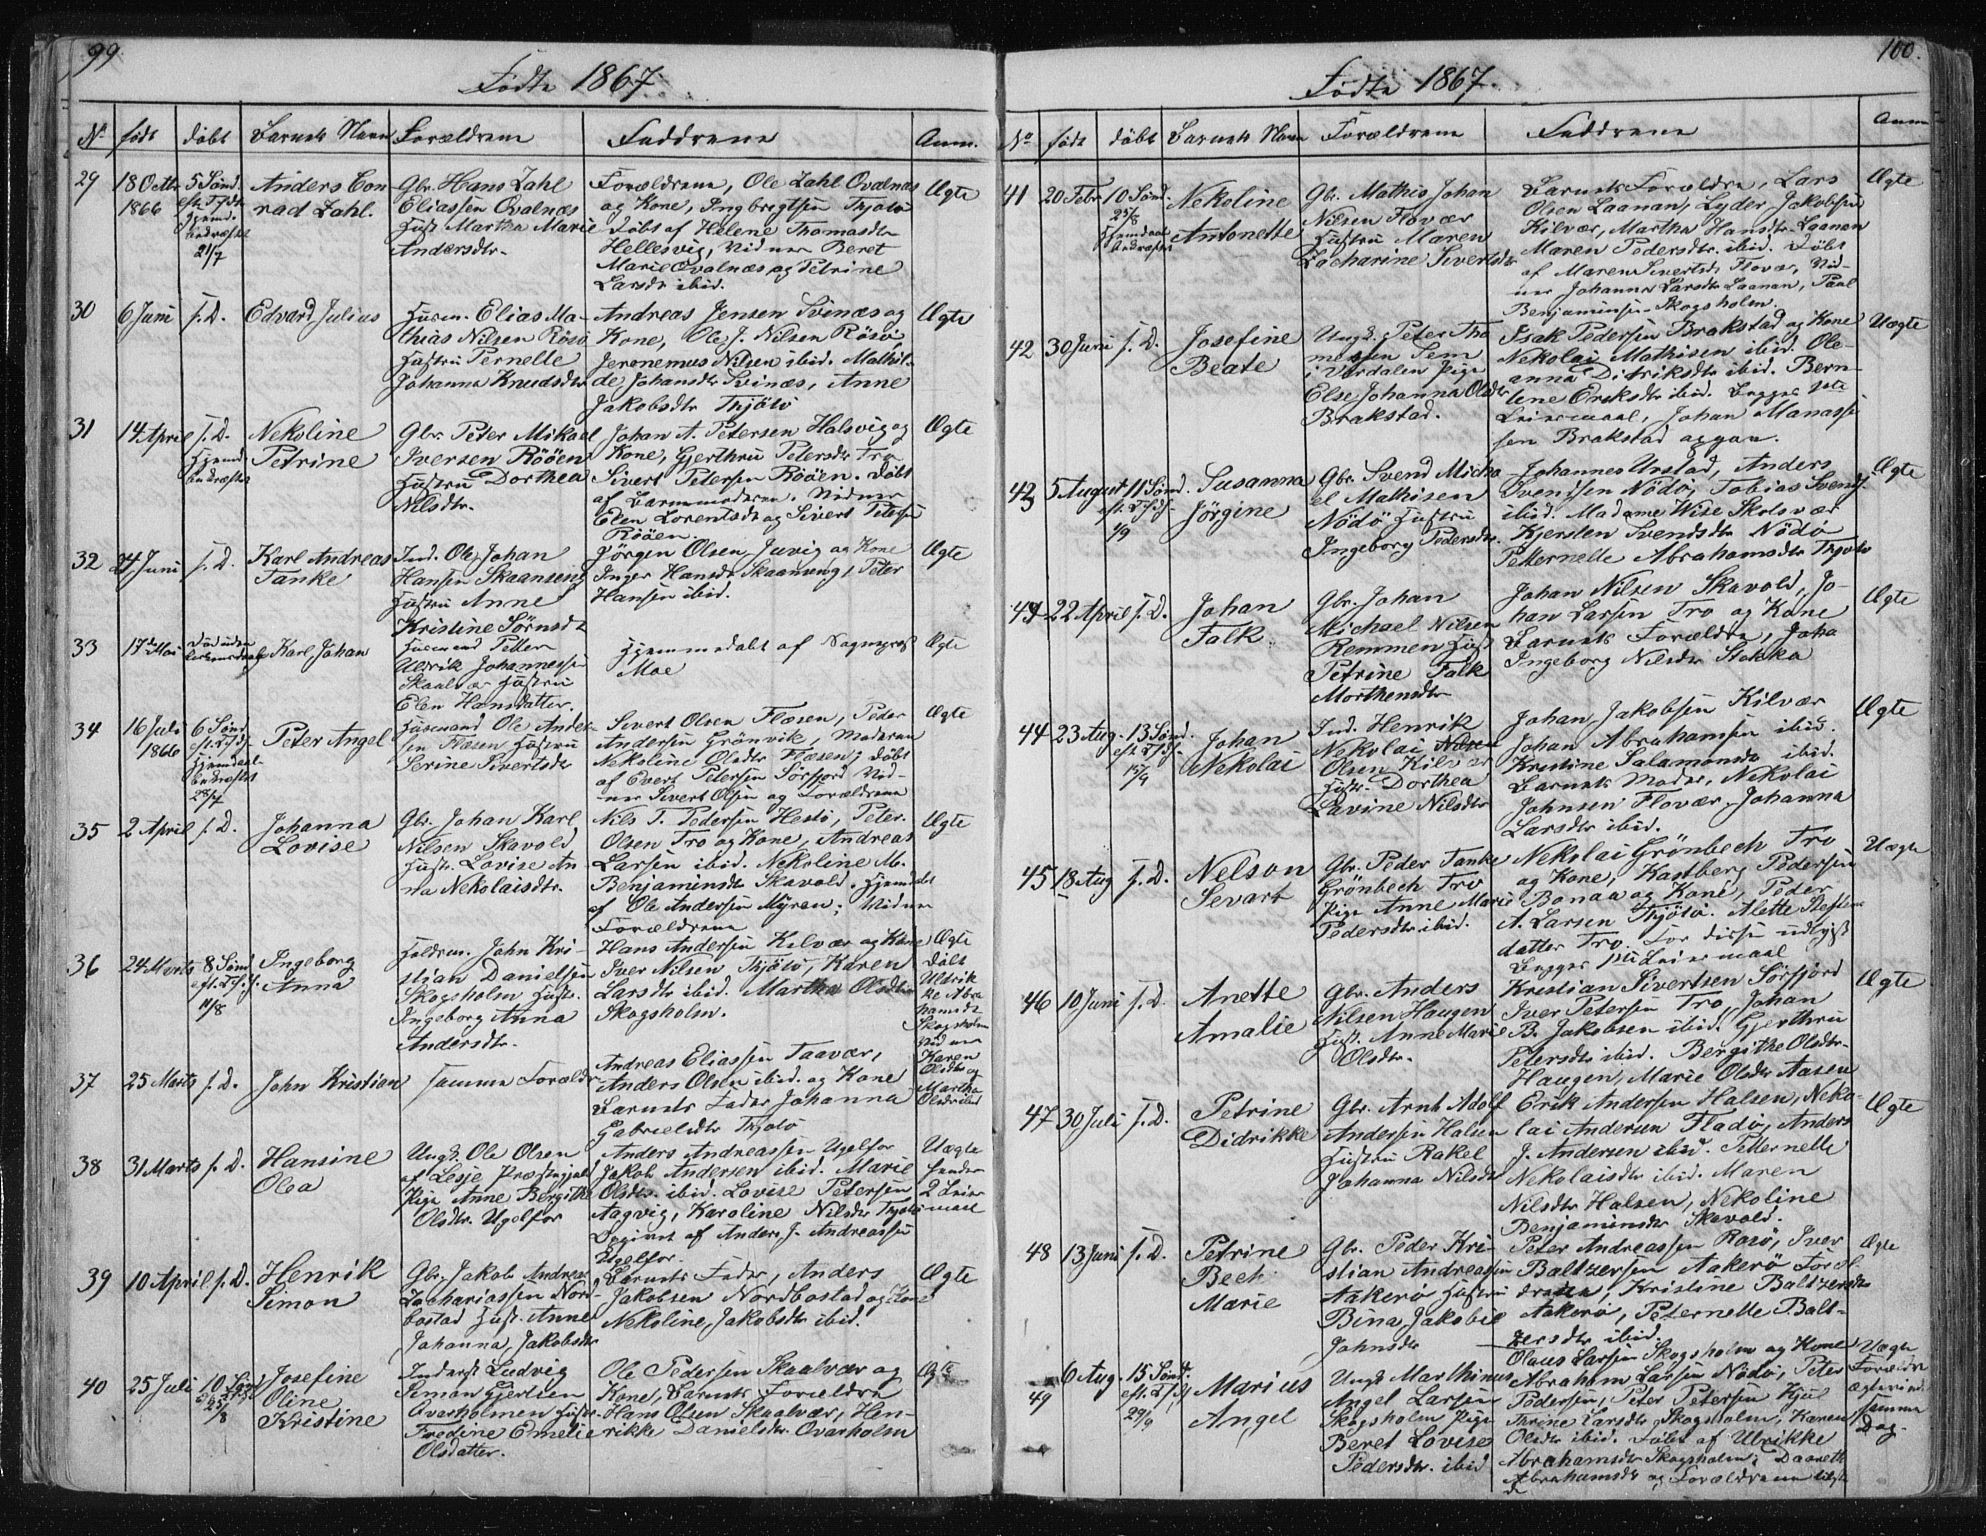 99.
Fødte 1867.
No født døbt Barnets Navn Forældrene Faddrene Anm.
29 18 Octbr 1866 5 Sønd. eft. Tr. hjemd. bekræftet 21/7
Anders Conrad Zahl.
Gbr. Hans Zahl
Eliassen Qvalnæs
Hust. Martha Marie
Andersdtr.
Forældrene, Ole Zahl Qvalnæs
og Kone, Ingbregtsen Thjøtø
Døbt af Helene Thomasdtr
Hellesvig, Vidner Beret
Marie Qvalnæs og Petrine
Larsdtr ibid.
Ægte
30 6 Juni s. D. Edvard Julius
Husm. Elias Ma-
thias Nilsen Rösö
Hustru Pernelle
Johanna Knudsdtr
Andreas Jensen Svinæs og
Kone, Ole J. Nilsen Rösö,
Jeronemus Nilsen ibid. Mathil-
de Johansdtr Svinæs, Anne
Jakobsdtr Thjötö
Ægte
31 14 April s. D. Hjemd. bekræftet
Nekoline
Petrine
Gbr. Peter Mikael
Iversen Rööen
Hustru Dorthea
Nilsdtr.
Johan A. Petersen Halsvig og
Kone, Gjerthru Petersdtr Tro
Sivert Petersen Rööen. Døbt
af Barnemoderen. Vidner
Elen Lorentsdtr og Sivert Peters.
Rööen.
Ægte
32 24 Juni s. D. Karl Andreas
Tanke
Ind. Ole Johan
Hansen Skaanseng
Hustru Anne
Kristine Sörnsdtr
Jörgen Olsen Juvig og Kone
Inger Hansdtr Skaanseng, Peter
Hansen ibid.
Ægte
33 17de Mai Død uden
Karl Johan
Husmand Petter
Uldrik Johannessen
Skaalvær Hustru
Elen Hansdatter.
Hjemmedøbt af
Moe
Ægte
34 16 Juli 1866 6 Sønd. eft. Tr. Hjemdøbt bekræftet 28/7
Peter Angel
Husmand Ole Ander-
sen Flæsen Hustru
Serine Sivertsdtr
Sivert Olsen Flæsen, Peder
Andersen Grönvik, Moderen
Nekoline Olsdtr Flæsen; døbt
af Evert Petersen Sörfjord Vid-
ner Sivert Olsen og Forældrene
Ægte
35 2 April s. D. Johanna
Lovise
Gbr. Johan Karl
Nilsen Skavold
Hustr. Lovise An-
na Nekolaisdtr.
Nils T. Pedersen Hestö, Peter
Olsen Tro og Kone, Andreas
Larsen ibid. Nekoline M.
Benjaminsdtr Skavold. Hjemdøbt
af Ole Andersen Myren; Vidner
Forældrene
Ægte
36 24 Marts 8 Sønd. eft. Tr. 11/8
Ingeborg
Anna
John Kri-
stian Danielsen
Skogsholm Hustr.
Ingeborg Anna
Andersdtr.
Hans Andersen Kilvær og Kone
Iver Nilsen Thjötö, Karen
Larsdtr ibid. Martha Olsdtr
Skogsholm.
Ægte
Døbt
Uldrik
ke Abra
hamsdtr
Skogsholm
Vidner
Karen
Olsdtr og
Martha
Olsdtr ibid
37 25 Marts s. D. John Kristian
Samme Forældre
Andreas Eliassen Taavær,
Anders Olsen ibid. og Kone
Barnets Fader Johanna
Gabrielsdtr Thjötö
38 31 Marts s. D. Hansine
Olea
Ungk. Ole Olsen
af Lesje Præstegjeld
Pige Anne Bergithe
Olsdtr. Ugelfor
Anders Andreassen Ugelfor
Jakob Andersen ibid. Marie
Olsdtr. ibid. Lovise Petersen
Aagvig, Karoline Nilsdtr Thjötö
Opgivet af Anders J. Andreassen
Ugelfor.
Uægte
2 Leier
maal
39 10 April s. D. Henrik
Simon
Gbr. Jakob Andreas
Zachariassen Nord-
bostad Hust. Anne
Johanna Jakobsdtr
Barnets Fader, Anders
Jakobsen Nordbostad og Kone
Nekoline Jakobsdtr ibid.
Ægte
40 25 Juli 10 Sønd. 25/8
Josefine
Oline
Kristine
Inderst Ludvig
Simon Gjertsen
Qvarholmen Hustr.
Fredine Emelie
Olsdatter.
Ole Pedersen Skaalvær og
Kone, Barnets Forældre
Hans Olsen Skaalvær, Hen-
rikke Danielsdtr. Qvarholm
Ægte
100.
Fødte 1867.
No født døbt Barnets Navn Forældrene Faddrene Anm
41 20 Febr 10 Sønd. 25/8 Hjemdøbt bekræftet
Nekoline
Antonette
Gbr. Mathis Johan
Nilsen Flovær
Hustru Maren
Zacharine Sivertsdtr
Barnets Forældre, Lars
Olsen Laanan, Lyder Jakobsen
Kilvær, Martha Hansdtr Laanan
Maren Pedersdtr. ibid. Døbt
af Maren Sivertsdtr Flovær, Vid-
ner Johanna Larsdtr Laanan, Paal
Benjaminsen Skogsholm.
Ægte
42 30 Juni s. D. Josefine
Beate
Ungk. Peter Tho
messen Sem
i Værdalen Pige
Else Johanna Olsdtr
Brakstad.
Isak Pedersen Brakstad og Kone
Nekolai Mathisen ibid. Ole-
anna Didriksdtr ibid. Bern-
tine Eriksdtr ibid. Begges 1ste
Leiermaal, Johan Manasse-
sen Brakstad opgav.
Uægte
43 5 August 11 Sønd. eft. Tr. 1/9
Susanna
Jörgine
Gbr. Svend Micha
el Mathisen
Nödö Hustru
Ingeborg Pedersdtr.
Johannes Urstad, Anders
Svendsen Nödö, Tobias Svends.
ibid. Madame Wise Skolsvær
Kjersten Svendsdtr Nödö
Petternelle Abrahamsdtr Thjötö
Ægte
43 22 April s. D. Johan
Falk.
Gbr. Johan
Michael Nilsen
Remmen Hust
Petrine Falk
Morthensdtr
Johan Nilsen Skavold, Jo-
han Larsen Tro og Kone
Barnets Forældre, Joha
Ingeborg Nilsdtr Stokka
Ægte
44 23 Aug. 13 Sønd. eft. Tr. 15/9
Johan
Nekolai
Ind. Henrik
Nekolai
Olsen Kilvær
Hustr. Dorthea
Lavine Nilsdtr
Johan Jakobsen Kilvær
Johan Abrahamsen ibid.
Kristine Salamonsdtr ibid.
Barnets Moder, Nekolai
Johnsen Flovær, Johanna
Larsdtr ibid.
Ægte
45 18 Aug s. D. Nelson
Sevart
Gbr. Peder Tanke
Grönbech Tro
Pige Anne Marie
Pedersdtr ibid.
Nekolai Grönbech Tro
og Kone, Kastberg Pedersen
Bonaa og Kone, Peder
A. Larsen Thjötö. Alette Steffens
datter Tro. For disse udlagt
Begges 1ste Leiermaal
Uægte
46 10 Juni s. D. Anette
Amalie
Gbr. Anders
Nilsen Haugen
Hust. Anne Marie
Olsdtr.
Kristian Sivertsen Sörfjord
Iver Petersen Tro, Johan
B. Jakobsen ibid. Gjerthru
Petersdtr ibid. Bergithe Olsdtr.
Haugen, Marie Olsdtr Aasen
Ægte
47 30 Juli s. D. Petrine
Didrikke
Gbr. Arnt Adolf
Andersen Halsen
Hustru Rakel
Johanna Nilsdtr
Erik Andersen Halsen, Neko-
lai Andersen Fladö, Anders
J. Andersen ibid. Petternelle
Nekolaisdtr ibid. Maren
Nilsdtr Halsen, Nekoline
Benjaminsdtr Skavold.
Ægte
48 13 Juni s. D. Petrine
Bech
Marie
Gbr. Peder Kri-
stian Andreassen
Aakerö Hustru
Bina Jakobie
Johnsdtr
Peter Andreassen Rosö, Iver
Baltzersen Aakerö Foræl-
drene, Kristine Baltzersdtr
Aakerö, Peternelle Balt-
zersdtr ibid.
Ægte
49 6 Aug. 15 Sønd. eft. Tr. 29/9
Marius
Angel
Ungk. Marthinus
Angel Larsen
Skogsholm Pige
Beret Lovise
Pedersdtr. ibid
Olaus Larsen Skogsholm og Kone
Abraham Larsen Nödö, Peter
Pedersen, Peter Petersen Hjul
Thrine Larsdtr Skogsholm, Karen
Olsdtr ibid. Døbt af Ulrikke
Abrahamsdtr Skogsholm; Daarette
Abrahamsdtr og Forældrene tilstede
Uægte
Forældre
ægteviede
samme
Dag.